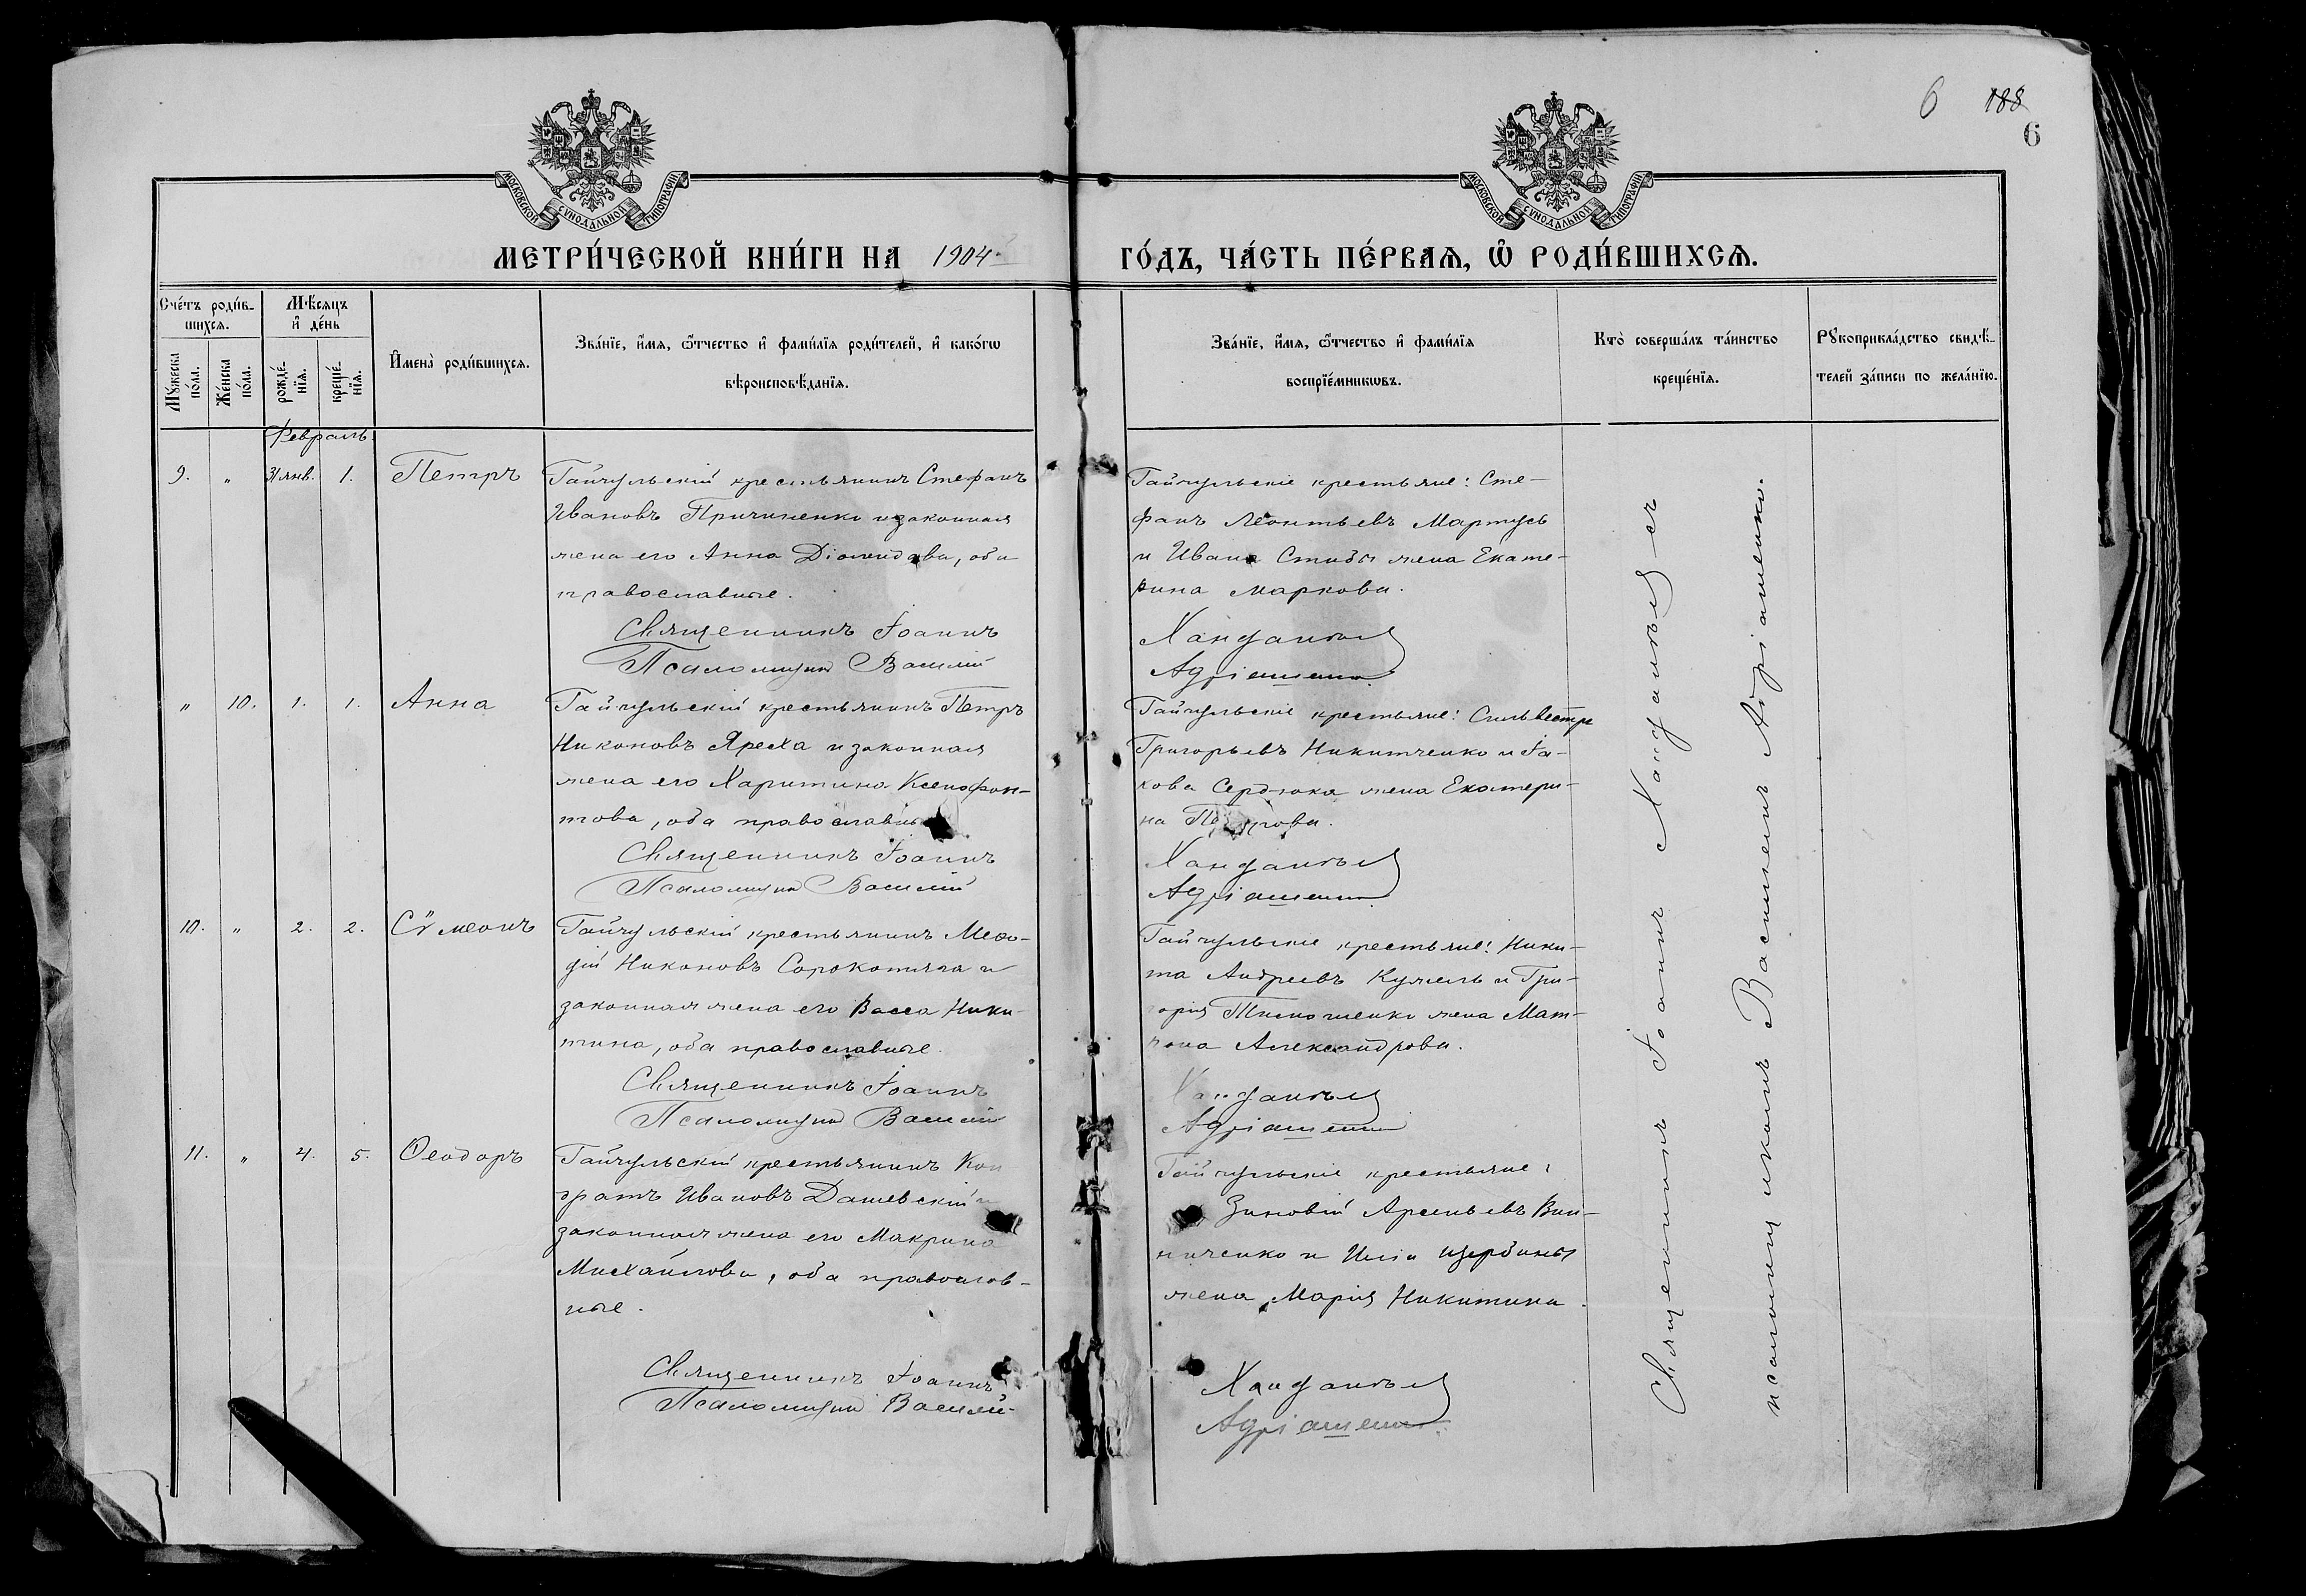 6 188
6
МОСКОВСКОЙ СУНОДАЛЬНОЙ ТИПОГРАФІИ
МОСКОВСКОЙ СУНОДАЛЬНОЙ ТИПОГРАФІИ
МЕТРИ́ЧЕСКОЙ КНИ́ГИ НА 1904 ГО́ДЪ, ЧА́СТЬ ПЕ́РВАѦ, Ѡ҆ РОДИ́ВШИХСѦ.
Сче́тъ роди́в-
шихсѧ.
Мꙋ́жеска
по́ла.
Же́нска
по́ла.
Мѣ́сѧцъ
и҆ де́нь
рожде́-
нїѧ.
креще́-
нїѧ.
И҆мена̀ роди́вшихсѧ.
Зва́нїе, и҆́мѧ, ѻ҆́тчество и҆ фами́лїѧ роди́телей, и҆ како́гѡ
вѣроисповѣ́данїѧ.
Зва́нїе, и҆́мѧ, ѻ҆́тчество и҆ фами́лїѧ
воспрїе́мникѡвъ.
Кто̀ соверша́лъ та́инство
креще́нїѧ.
Рꙋкоприкла́дство свидѣ́-
телей за́писи по жела́нїю.
Февраль.
9. " 31 янв. 1. Петръ
Гайчульскій крестьянинъ Стефанъ
Ивановъ Причиненко и законная
жена его Анна Діомидова, оба
православные.
Священникъ Іоаннъ
Псаломщикъ Василій
Гайчульскіе крестьяне: Сте-
фанъ Леонтьевъ Мартусь
и Ивана жена Екате-
рина Маркова.
Ханданьев
Адріашенко
" 10. 1. 1. Анна
Гайчульскій крестьянинъ Петръ
Никоновъ Яреха и законная
жена его Харитина Ксенофон-
това, оба православные
Священникъ Іоаннъ
Псаломщикъ Василій
Гайчульскіе крестьяне: Сильвестръ
Григорьевъ Никитченко и Іа-
кова Сердюка жена Екатери-
на
Ханданьев
Адріашенко
10. " 2. 2. Сѵмеонъ
Гайчульскій крестьянинъ Меѳо-
дій Никоновъ Сорокотяга и
законная жена его Васса Ники-
тина, оба православные.
Священникъ Іоаннъ
Псаломщикъ Василій
Гайчульскіе крестьяне: Ники-
та Андреевъ Кужель и Гри-
горія Тимошенко жена Мат-
рона Александрова.
Ханданьев
Адріашенко
11. " 4. 5. Ѳеодоръ
Гайчульскій крестьянинъ Кон-
дратъ Ивановъ Дашевскій и
законная жена его Макрина
Михайлова, оба православ-
ные.
Священникъ Іоаннъ
Псаломщикъ Василій
Гайчульскіе крестьяне:
Зиновій Арсеньевъ Вин-
ниченко и Иліи Щербины
жена Марія Никитина.
Ханданьев
Адріашенко
Священникъ Іоаннъ Ханданьев съ
псаломщикомъ Василіемъ Адріашенко.